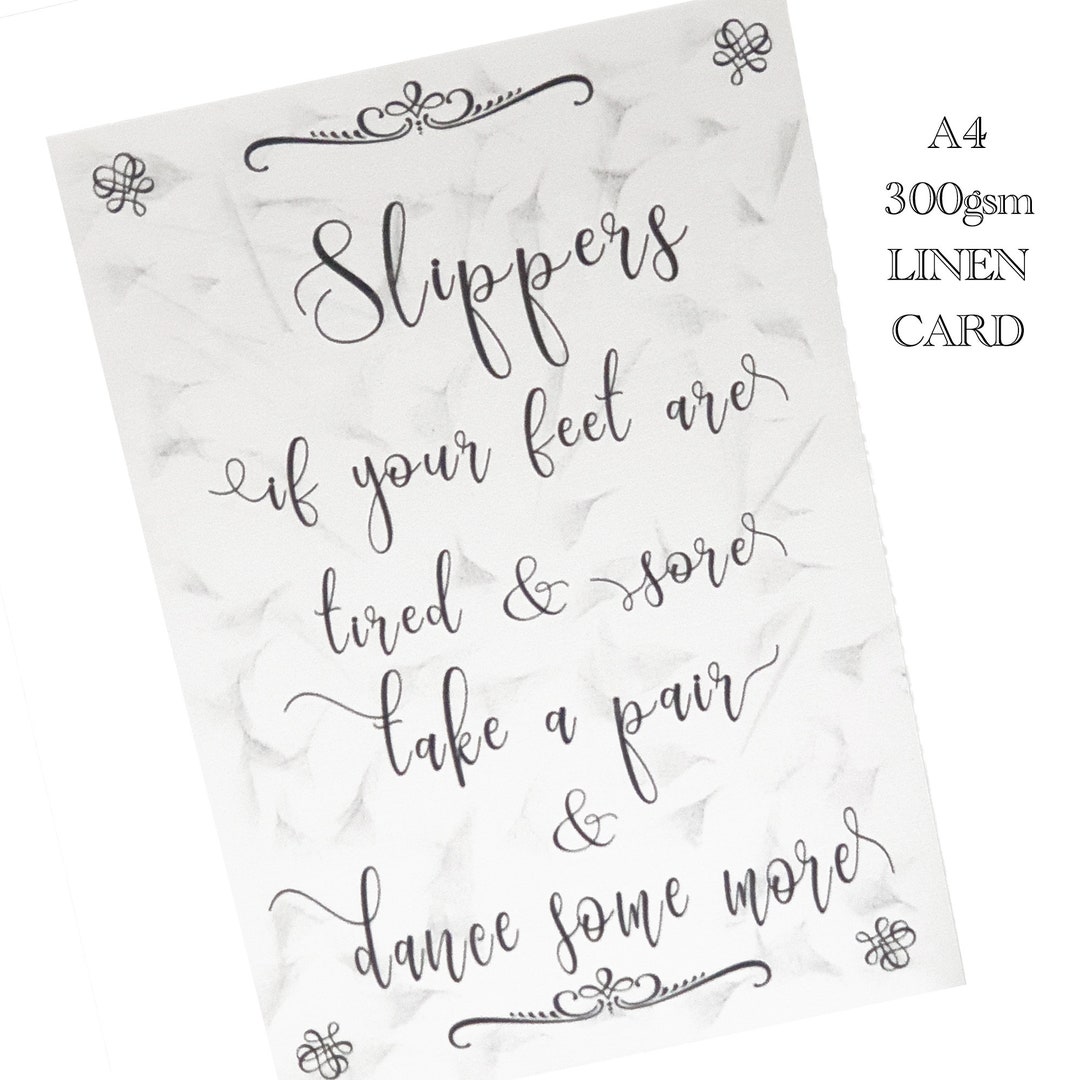 Slippers
if your feet are
tired & sore
take a pair
&
dance some more
A4
300gsm
LINEN
CARD